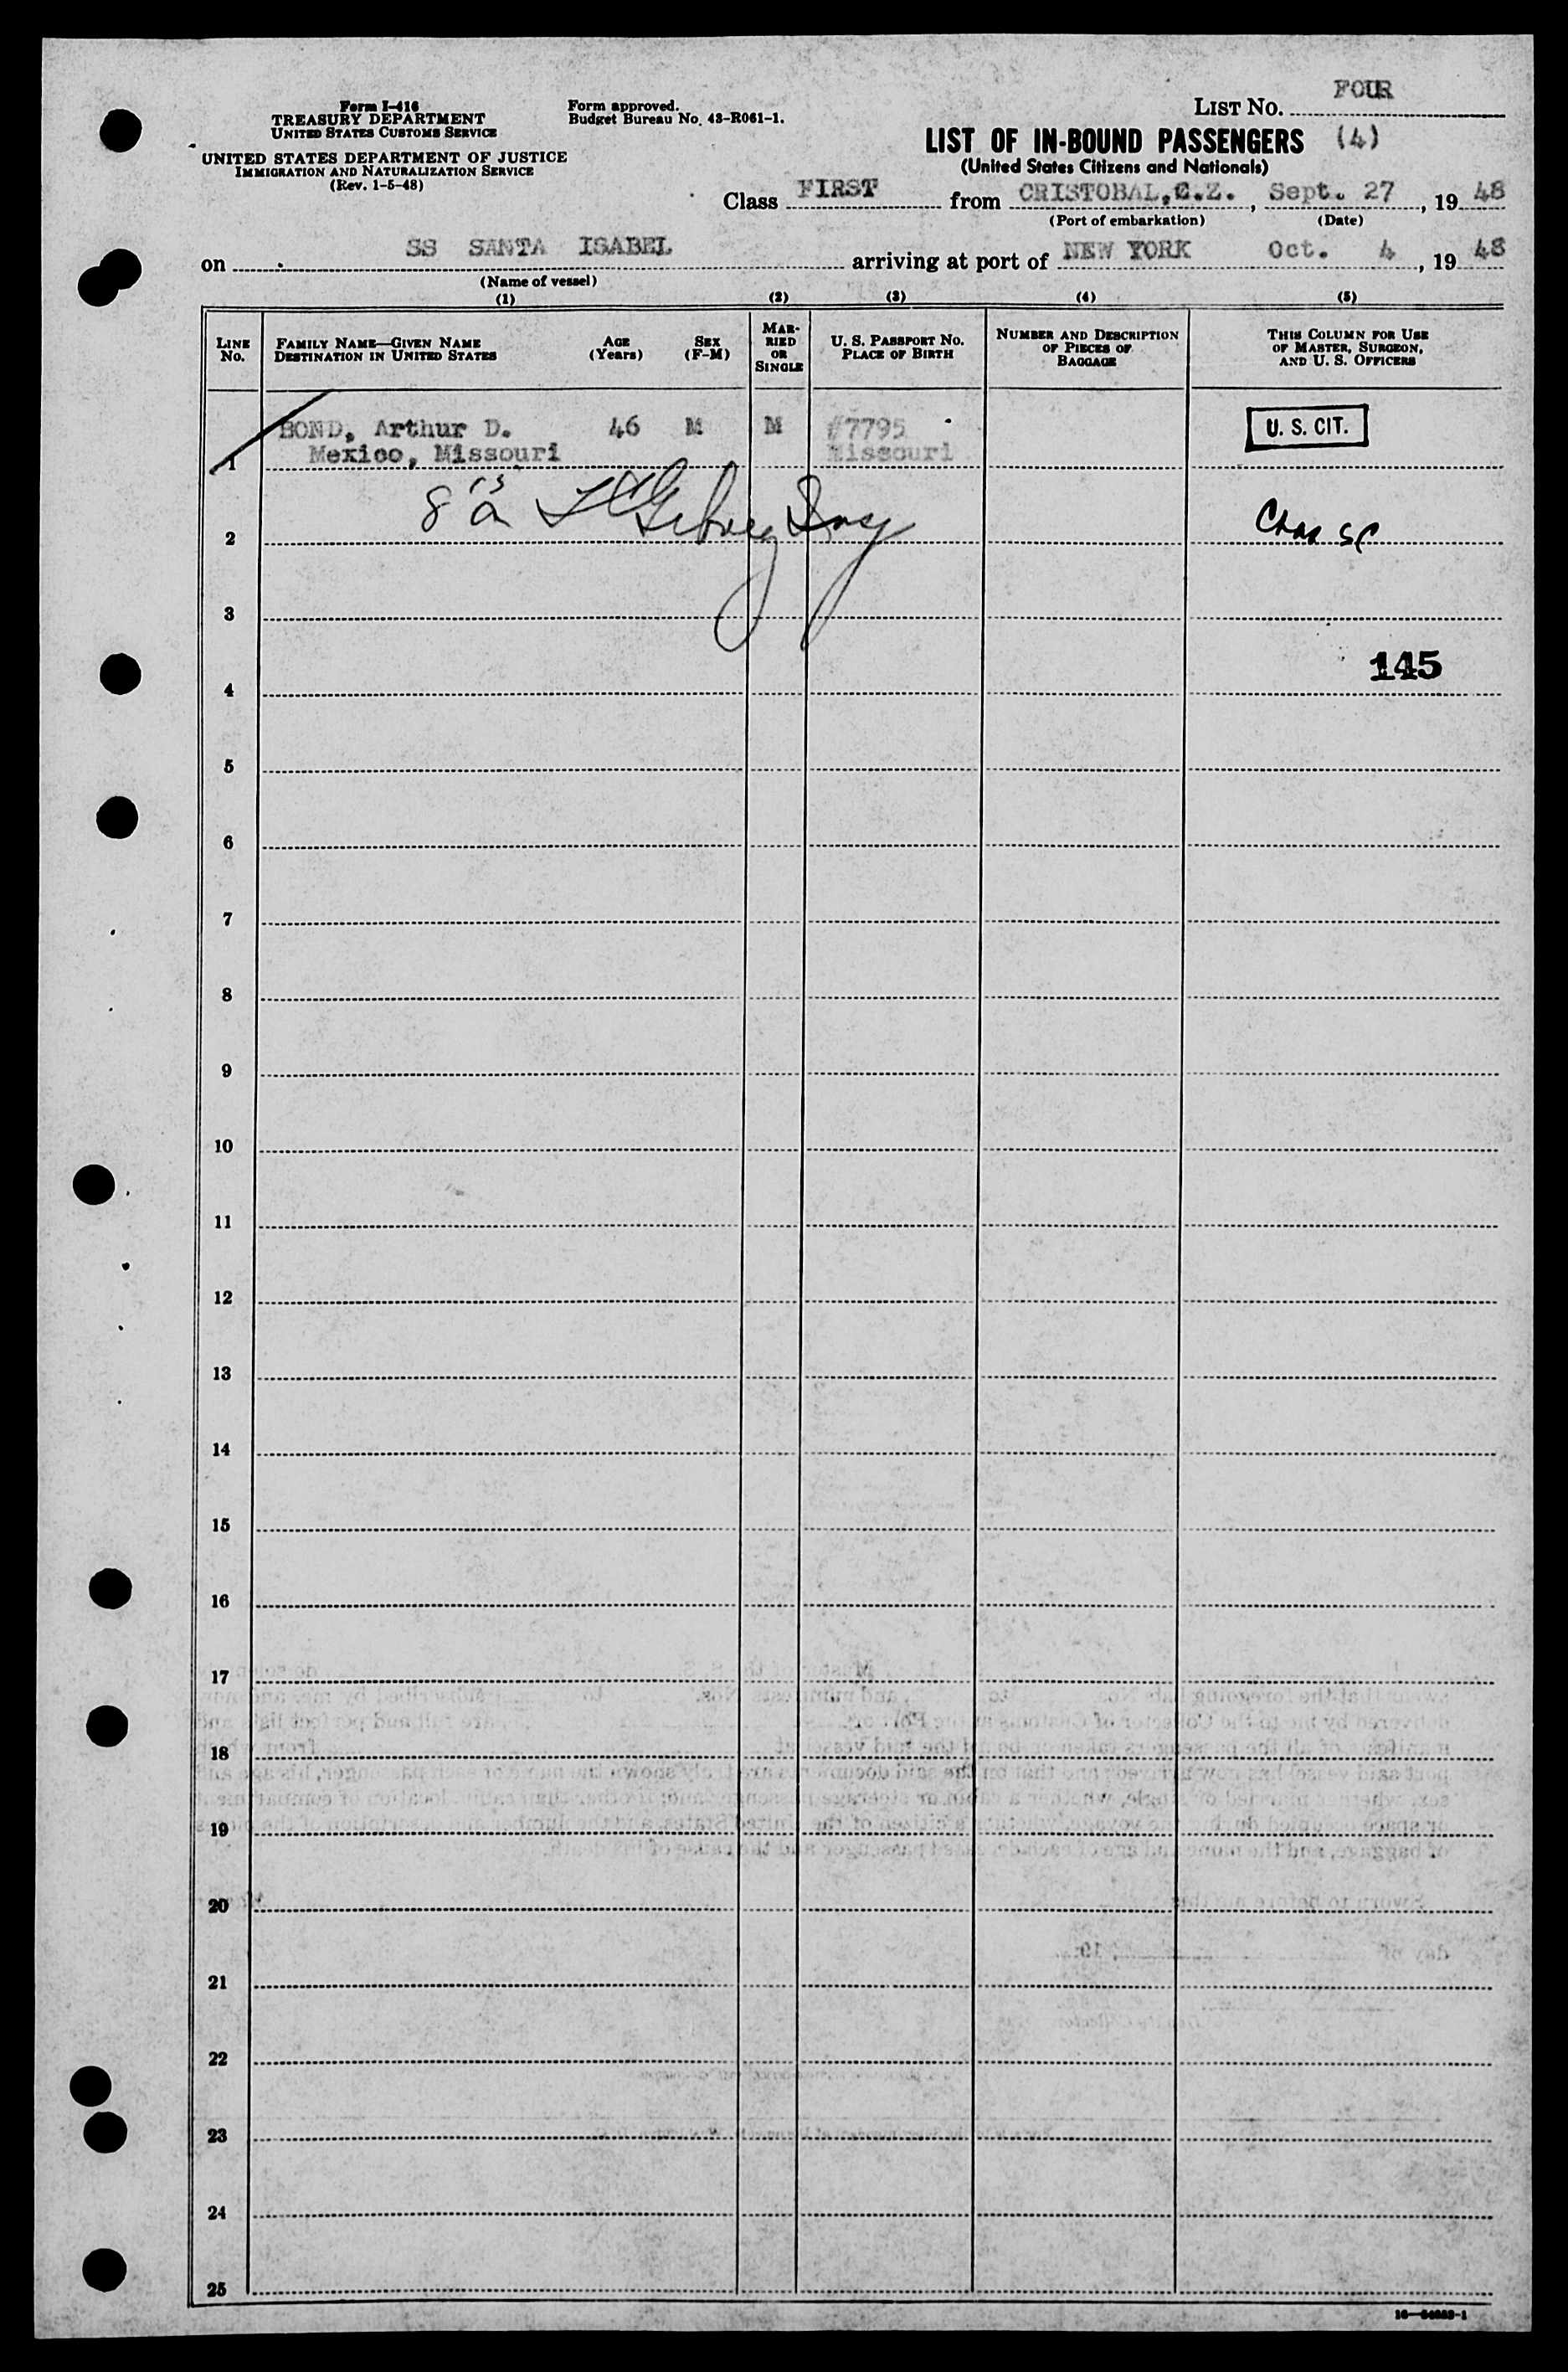 Form I-416
TREASURY DEPARTMENT
UNITED STATES CUSTOMS SERVICE
UNITED STATES DEPARTMENT OF JUSTICE
IMMIGRATION AND NATURALIZATION SERVICE
(Rev. 1-5-48)
Form approved.
Budget Bureau No. 43-R061-1.
LIST No. FOUR
LIST OF IN-BOUND PASSENGERS (4)
(United States Citizens and Nationals)
Class FIRST from CRISTOBAL, C.Z., Sept. 27, 1948
(Port of embarkation) (Date)
on SS SANTA ISABEL arriving at port of NEW YORK Oct. 4, 1948
(Name of vessel)
(1) (2) (3) (4) (5)
LINE No.
FAMILY NAME—GIVEN NAME
DESTINATION IN UNITED STATES
AGE (Years)
SEX (F-M)
MARRIED OR SINGLE
U. S. PASSPORT No.
PLACE OF BIRTH
NUMBER AND DESCRIPTION OF PIECES OF BAGGAGE
THIS COLUMN FOR USE OF MASTER, SURGEON, AND U. S. OFFICERS
1 BOND, Arthur D. 46 M M #7795 U. S. CIT.
Mexico, Missouri Missouri
2
3
4 145
5
6
7
8
9
10
11
12
13
14
15
16
17
18
19
20
21
22
23
24
25